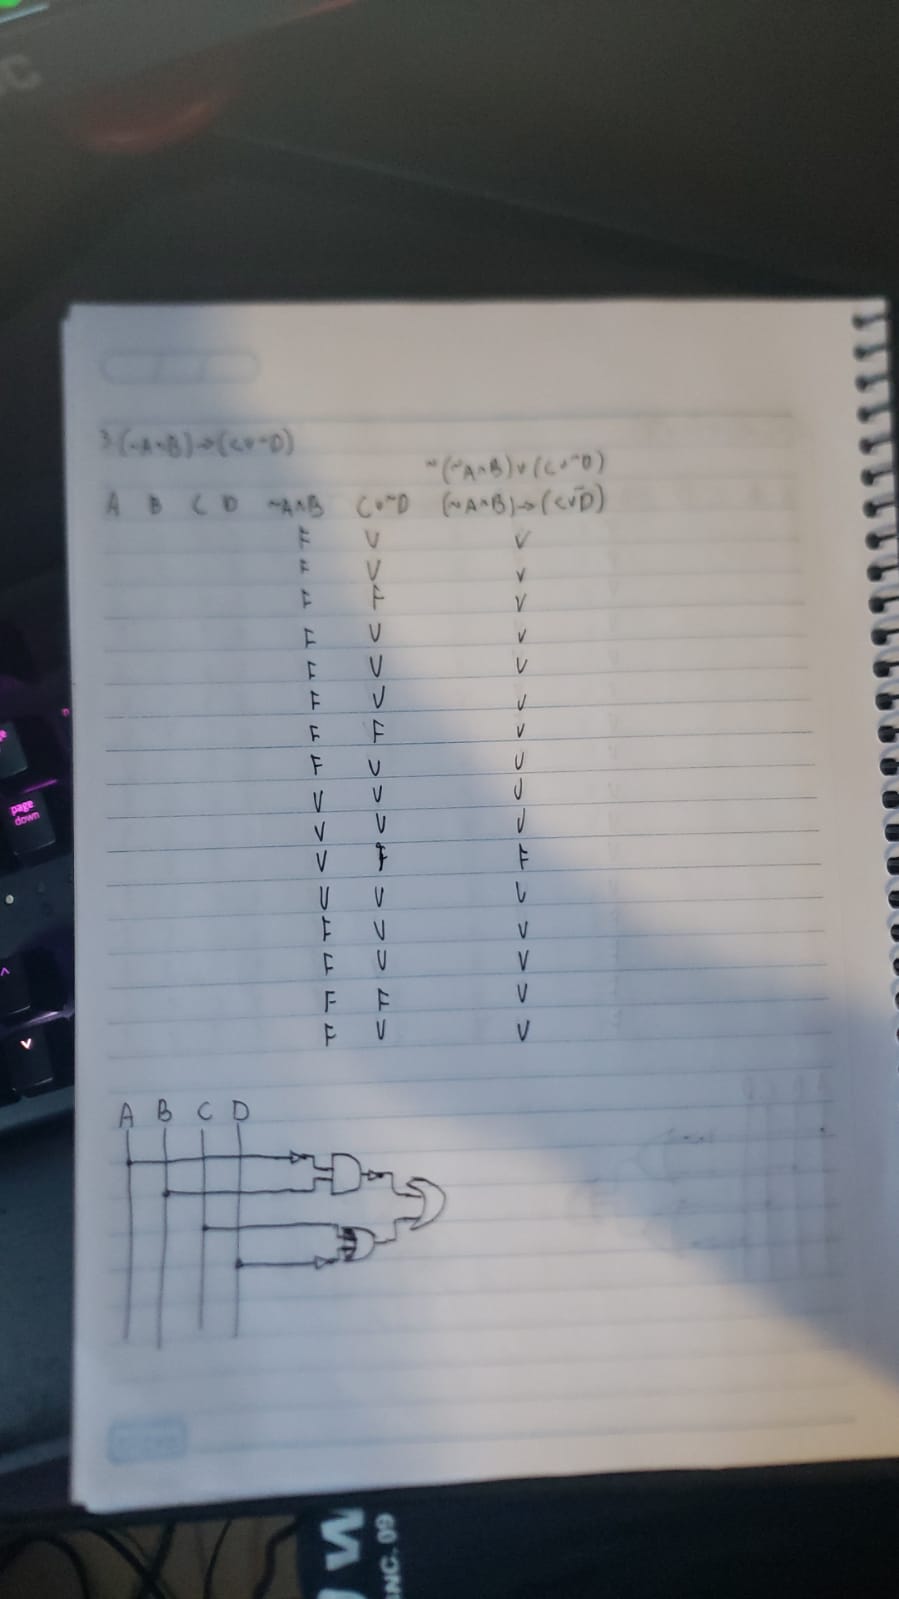 3. (~A∧B)→(C∨~D)
~(~A∧B)∨(C∨~D)
A B C D ~A∧B C∨~D (~A∧B)→(C∨~D)
F V V
F V V
F F V
F V V
F V V
F V V
F F V
F V V
V V V
V V V
V F F
V V V
F V V
F V V
F F V
F V V
A B C D
page
down
W
NC. 09